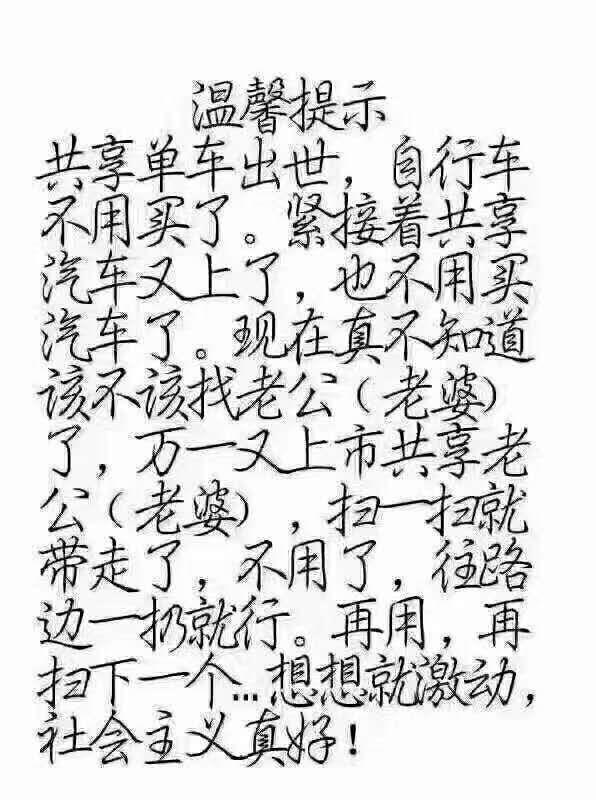 温馨提示
共享单车出世，自行车
不用买了。紧接着共享
汽车又上了，也不用买
汽车了。现在真不知道
该不该找老公（老婆）
了，万一又上市共享老
公（老婆），扫一扫就
带走了，不用了，往路
边一扔就行。再用，再
扫下一个...想想就激动，
社会主义真好！